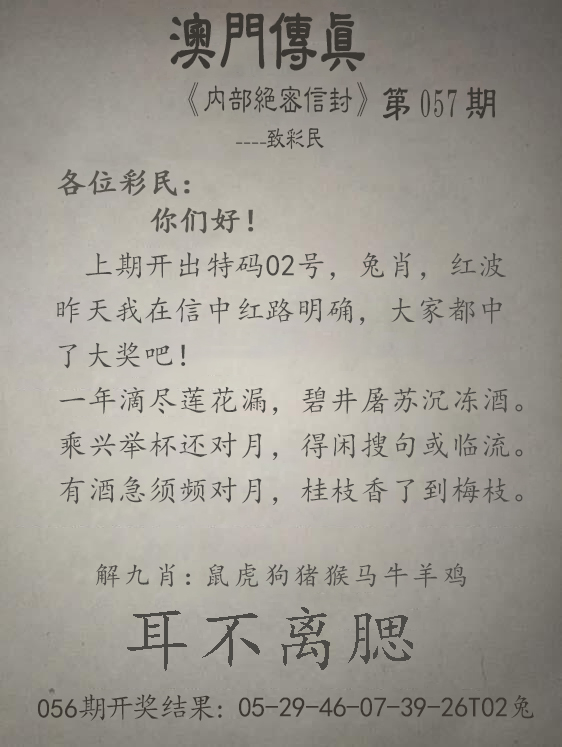 澳門傳眞
《内部絕密信封》第057期
----致彩民
各位彩民：
你们好！
上期开出特码02号，兔肖，红波
昨天我在信中红路明确，大家都中
了大奖吧！
一年滴尽莲花漏，碧井屠苏沉冻酒。
乘兴举杯还对月，得闲搜句或临流。
有酒急须频对月，桂枝香了到梅枝。
解九肖：鼠虎狗猪猴马牛羊鸡
耳不离腮
056期开奖结果：05-29-46-07-39-26T02兔